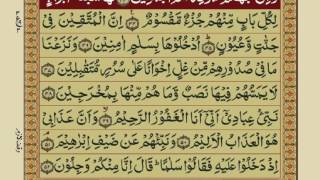 لِكُلِّ بَابٍ مِّنْهُمْ جُزْءٌ مَّقْسُوْمٌ ﴿۴۴﴾ اِنَّ الْمُتَّقِيْنَ فِيْ
جَنّٰتٍ وَّعُيُوْنٍ ﴿۴۵﴾ اُدْخُلُوْهَا بِسَلٰمٍ اٰمِنِيْنَ ﴿۴۶﴾ وَنَزَعْنَا
مَا فِيْ صُدُوْرِهِمْ مِّنْ غِلٍّ اِخْوَانًا عَلٰى سُرُرٍ مُّتَقٰبِلِيْنَ ﴿۴۷﴾
لَا يَمَسُّهُمْ فِيْهَا نَصَبٌ وَّمَا هُمْ مِّنْهَا بِمُخْرَجِيْنَ ﴿۴۸﴾
نَبِّئْ عِبَادِيْۤ اَنِّيْۤ اَنَا الْغَفُوْرُ الرَّحِيْمُ ﴿۴۹﴾ وَاَنَّ عَذَابِيْ
هُوَ الْعَذَابُ الْاَلِيْمُ ﴿۵۰﴾ وَنَبِّئْهُمْ عَنْ ضَيْفِ اِبْرٰهِيْمَ ﴿۵۱﴾
اِذْ دَخَلُوْا عَلَيْهِ فَقَالُوْا سَلٰمًا ؕ قَالَ اِنَّا مِنْكُمْ وَجِلُوْنَ ﴿۵۲﴾